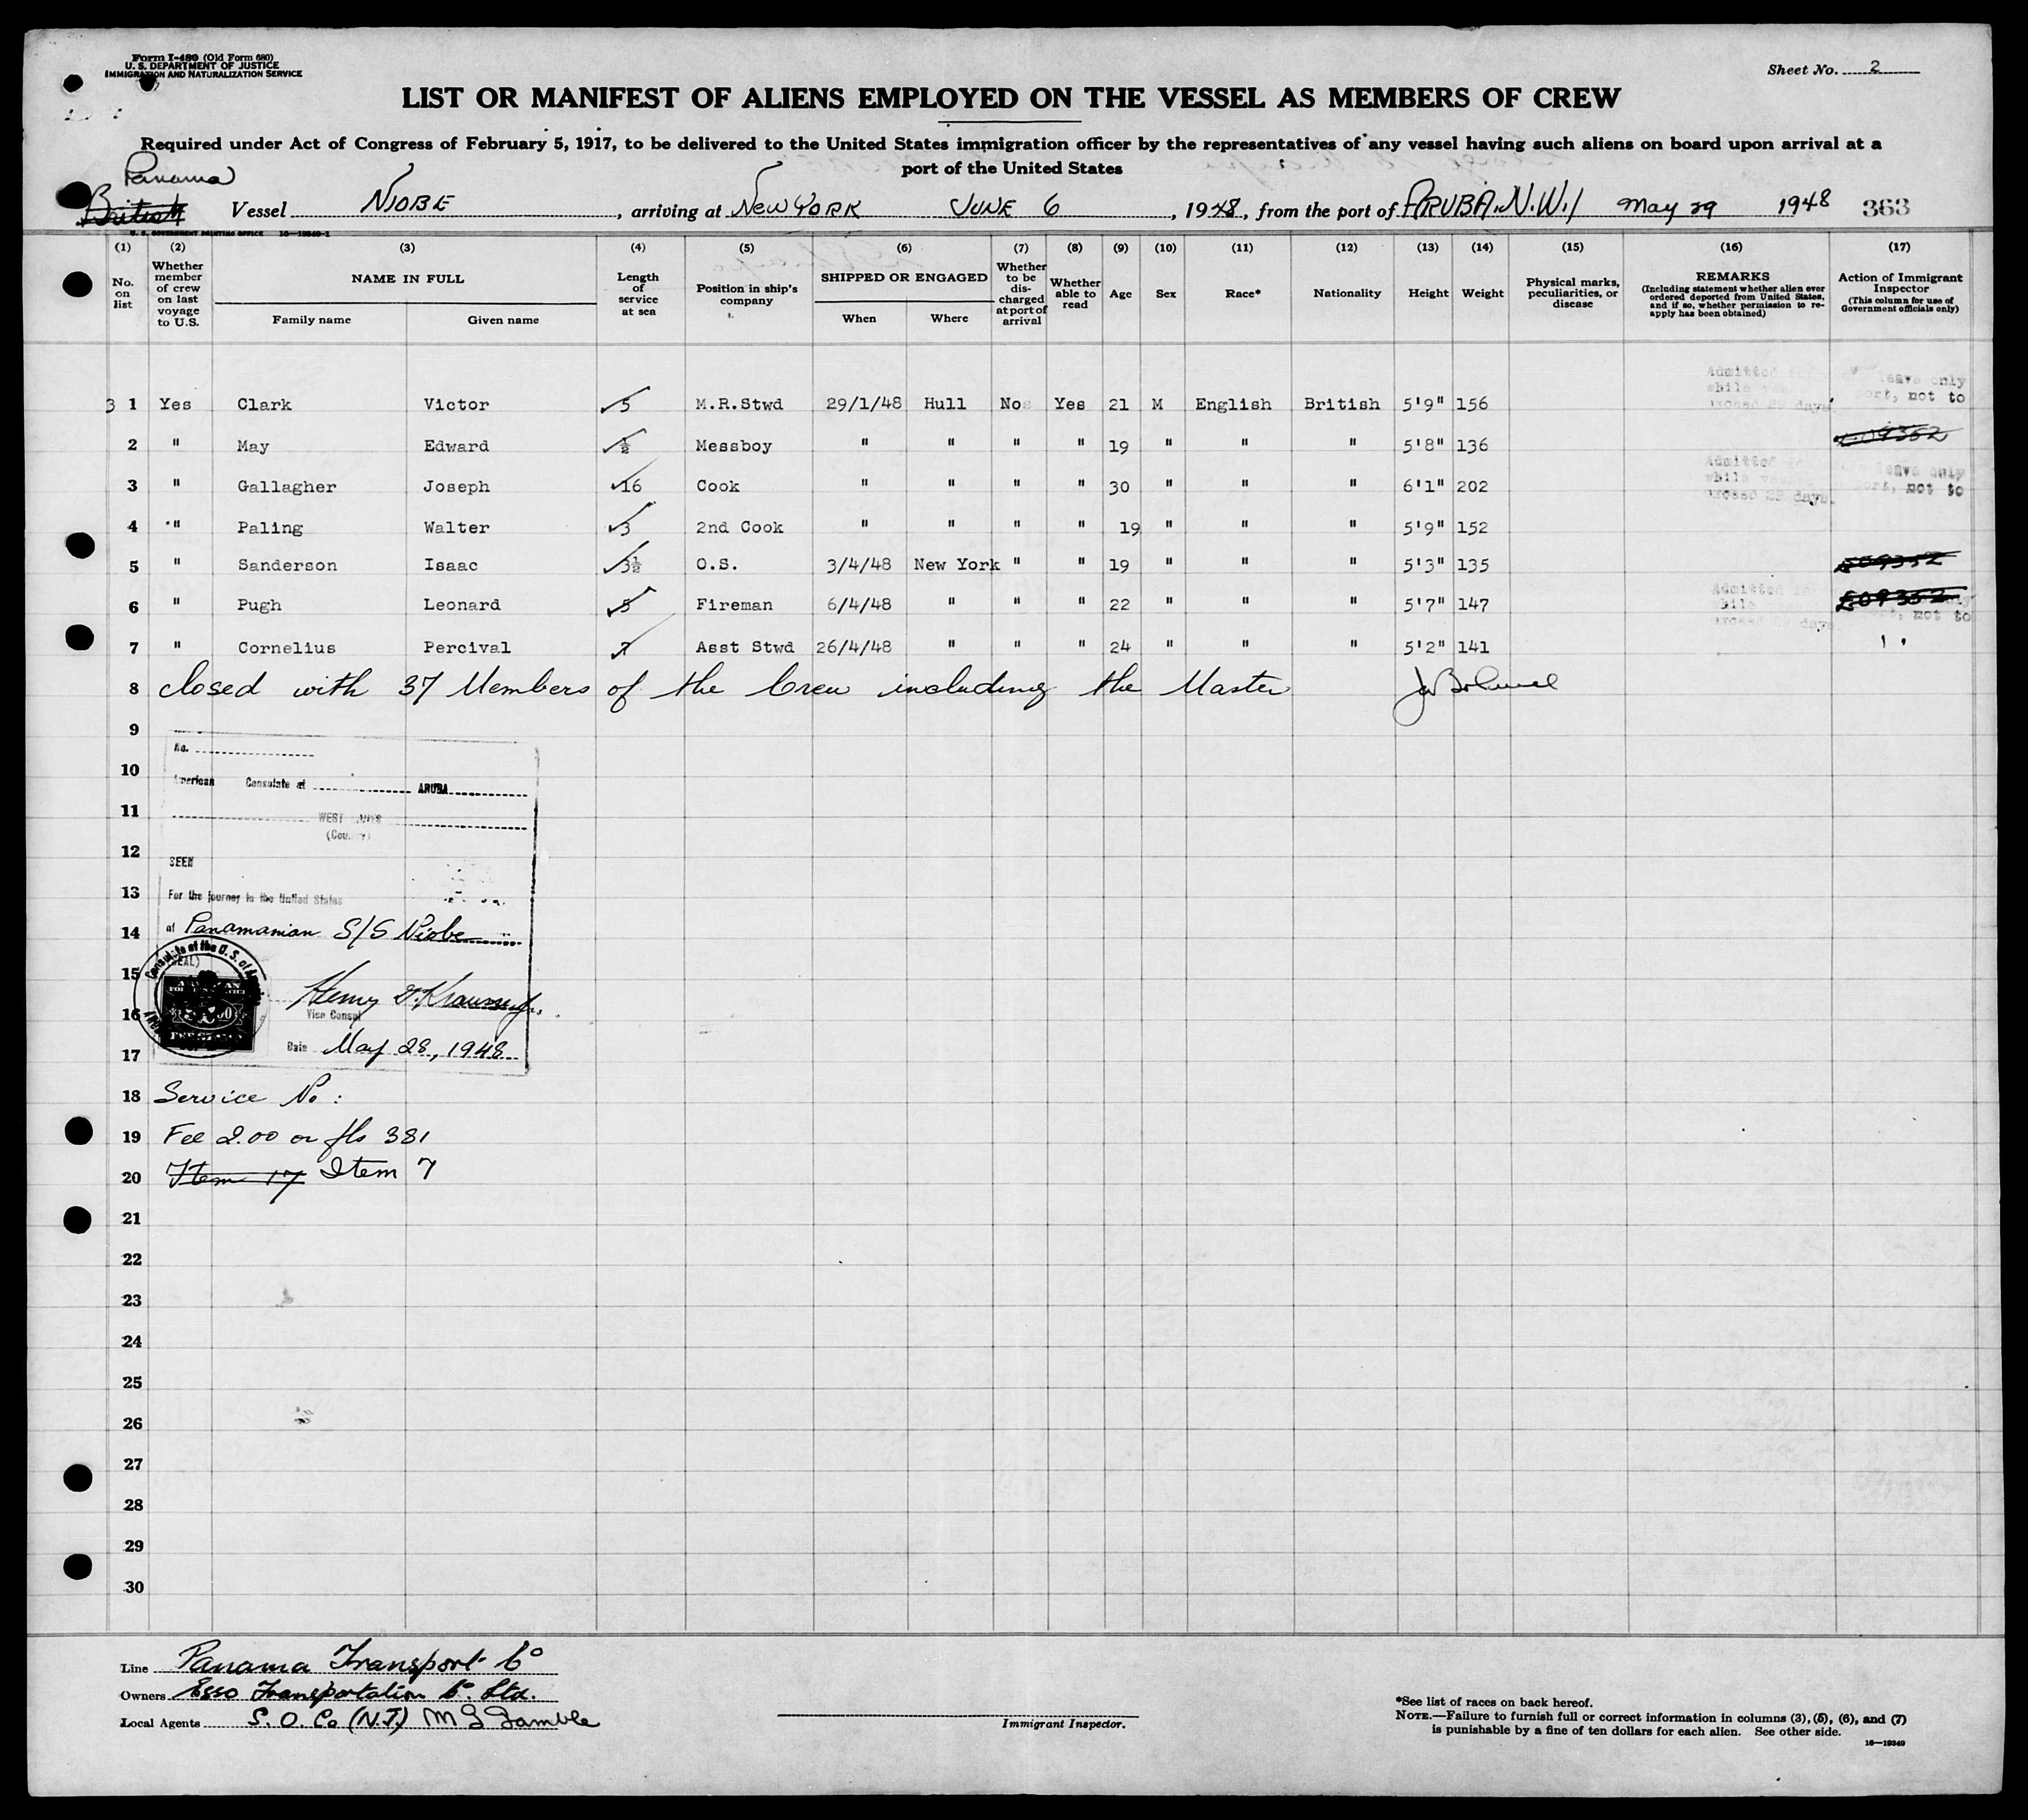 Form I-480 (Old Form 680)
U. S. DEPARTMENT OF JUSTICE
IMMIGRATION AND NATURALIZATION SERVICE
Sheet No. 2
LIST OR MANIFEST OF ALIENS EMPLOYED ON THE VESSEL AS MEMBERS OF CREW
Required under Act of Congress of February 5, 1917, to be delivered to the United States immigration officer by the representatives of any vessel having such aliens on board upon arrival at a
port of the United States
Panama
British Vessel NIOBE, arriving at NEW YORK JUNE 6, 1948, from the port of ARUBA. N.W.I May 29 1948 363
U. S. GOVERNMENT PRINTING OFFICE 16—19349-1
(1) (2) (3) (4) (5) (6) (7) (8) (9) (10) (11) (12) (13) (14) (15) (16) (17)
No. on list
Whether member of crew on last voyage to U.S.
NAME IN FULL
Family name Given name
Length of service at sea
Position in ship's company
SHIPPED OR ENGAGED
When Where
Whether to be discharged at port of arrival
Whether able to read
Age
Sex
Race*
Nationality
Height
Weight
Physical marks, peculiarities, or disease
REMARKS
(Including statement whether alien ever ordered deported from United States, and if so, whether permission to reapply has been obtained)
Action of Immigrant Inspector
(This column for use of Government officials only)
Admitted leave only
while
exceed 29 days. port, not to
3 1 Yes Clark Victor 5 M.R.Stwd 29/1/48 Hull No Yes 21 M English British 5'9" 156
2 " May Edward ½ Messboy " " " " 19 " " " 5'8" 136
Admitted leave only
while
exceed 29 days. port, not to
3 " Gallagher Joseph 16 Cook " " " " 30 " " " 6'1" 202
4 " Paling Walter 3 2nd Cook " " " " 19 " " " 5'9" 152
5 " Sanderson Isaac 3½ O.S. 3/4/48 New York " " 19 " " " 5'3" 135
Admitted
while
exceed 29 days. not to
6 " Pugh Leonard 5 Fireman 6/4/48 " " " 22 " " " 5'7" 147
7 " Cornelius Percival 7 Asst Stwd 26/4/48 " " " 24 " " " 5'2" 141
8 closed with 37 Members of the Crew including the Master
9
No.
10
American Consulate at ARUBA
11
WEST
(Country)
12
SEEN
13
For the journey to the United States
14 of Panamanian S/S Niobe
Consulate of the U. S. of
(SEAL)
15
16
Vice Consul
17 Date May 28, 1948
18 Service No :
19 Fee 2.00 or fls 381
20 Item 17 Item 7
21
22
23
24
25
26
27
28
29
30
Line Panama Transport Co
Owners Esso Transportation Co. Ltd.
Local Agents S. O. Co (N.J.) M G Gamble
Immigrant Inspector.
*See list of races on back hereof.
NOTE.—Failure to furnish full or correct information in columns (3), (5), (6), and (7)
is punishable by a fine of ten dollars for each alien. See other side.
16—19349